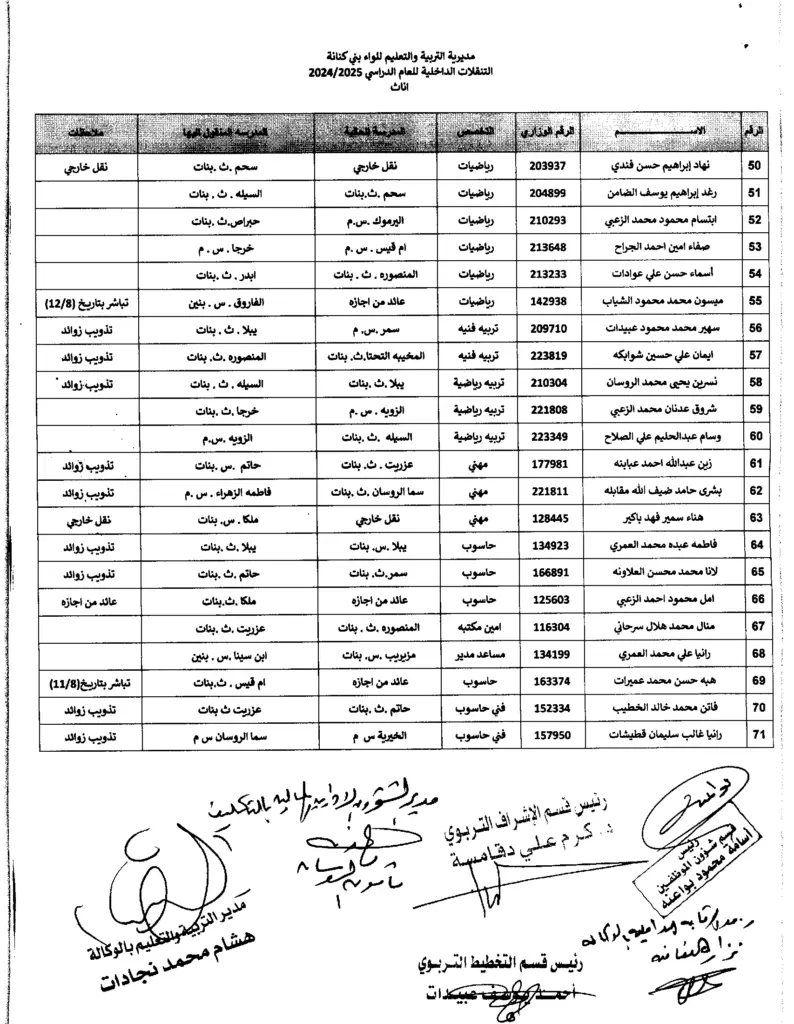 مديرية التربية والتعليم للواء بني كنانة
التنقلات الداخلية للعام الدراسي 2024/2025
اناث
الرقم الاســـــــــــم الرقم الوزاري التخصص المدرسة الحالية المدرسه المنقول اليها ملاحظات
50 نهاد إبراهيم حسن فندي 203937 رياضيات نقل خارجي سحم .ث. بنات نقل خارجي
51 رغد إبراهيم يوسف الضامن 204899 رياضيات سحم .ث.بنات السيله . ث . بنات
52 ابتسام محمود محمد الزعبي 210293 رياضيات اليرموك .س.م حبراص.ث. بنات
53 صفاء امين احمد الجراح 213648 رياضيات ام قيس . س . م خرجا . س . م
54 أسماء حسن علي عوادات 213233 رياضيات المنصوره . ث . بنات ابدر . ث . بنات
55 ميسون محمد محمود الشياب 142938 رياضيات عائد من اجازه الفاروق . س . بنين تباشر بتاريخ (12/8)
56 سهير محمد محمود عبيدات 209710 تربيه فنيه سمر .س. م يبلا . ث . بنات تذويب زوائد
57 ايمان علي حسين شوابكه 223819 تربيه فنيه المخيبه التحتا.ث. بنات المنصوره .ث. بنات تذويب زوائد
58 نسرين يحيى محمد الروسان 210304 تربيه رياضية يبلا .ث. بنات السيله . ث . بنات تذويب زوائد
59 شروق عدنان محمد الزعبي 221808 تربيه رياضية الزويه . س . م خرجا .ث. بنات
60 وسام عبدالحليم علي الصلاح 223349 تربيه رياضية السيله .ث. بنات الزويه .س.م
61 زين عبدالله احمد عبابنه 177981 مهني عزريت . ث. بنات حاتم .س. بنات تذويب زوائد
62 بشرى حامد ضيف الله مقابله 221811 مهني سما الروسان .ث. بنات فاطمه الزهراء . س .م تذويب زوائد
63 هناء سمير فهد باكير 128445 مهني نقل خارجي ملكا . س. بنات نقل خارجي
64 فاطمه عبده محمد العمري 134923 حاسوب يبلا .س. بنات يبلا .ث. بنات تذويب زوائد
65 لانا محمد محسن العلاونه 166891 حاسوب سمر.ث. بنات حاتم .ث. بنات تذويب زوائد
66 امل محمود احمد الزعبي 125603 حاسوب عائد من اجازه ملكا .ث.بنات عائد من اجازه
67 منال محمد هلال سرحاني 116304 امين مكتبه المنصوره .ث . بنات عزريت .ث. بنات
68 رانيا علي محمد العمري 134199 مساعد مدير مزيريب .س. بنات ابن سينا .س . بنين
69 هبه حسن محمد عميرات 163374 حاسوب عائد من اجازه ام قيس . ث.بنات تباشر بتاريخ(11/8)
70 فاتن محمد خالد الخطيب 152334 فني حاسوب حاتم .ث. بنات عزريت ث بنات تذويب زوائد
71 رانيا غالب سليمان قطيشات 157950 فني حاسوب الخيرية س م سما الروسان س م تذويب زوائد
مدير الشؤون الادارية والمالية بالتكليف
رئيس قسم الإشراف التربوي
د. كرم علي دقامسة
رئيس
قسم شؤون الموظفين
أسامة محمود بواعنه
مدير التربية والتعليم بالوكالة
هشام محمد نجادات
رئيس قسم التخطيط التربوي
أحمد يوسف عبيدات